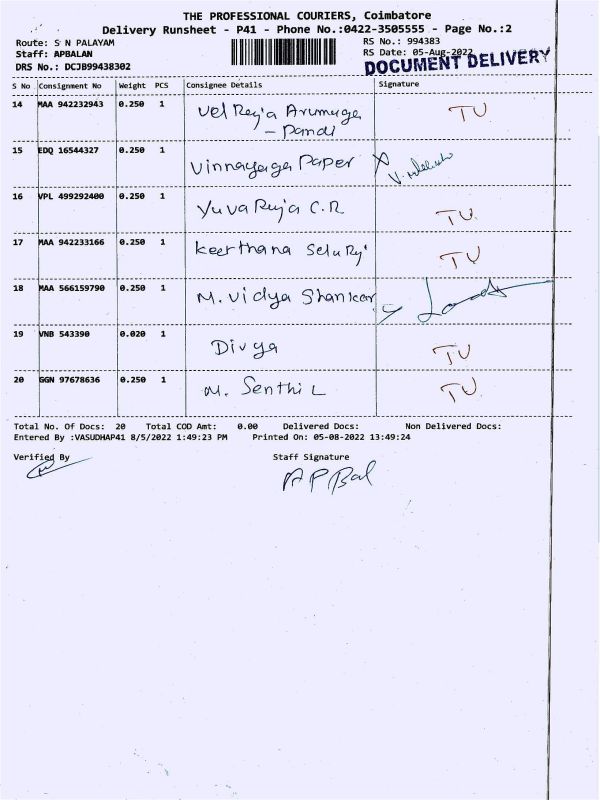 THE PROFESSIONAL COURIERS, Coimbatore
Delivery Runsheet - P41 - Phone No.:0422-3505555 - Page No.:2
Route: S N PALAYAM
RS No.: 994383
Staff: APBALAN
RS Date: 05-Aug-2022
DRS No.: DCJB99438302
DOCUMENT DELIVERY
S No Consignment No Weight PCS Consignee Details Signature
14 MAA 942232943 0.250 1 Vel Raja Arumuga TU
- Pandi
15 EDQ 16544327 0.250 1 Vinnayaga Paper
16 VPL 499292400 0.250 1 Yuva Raja C.R TU
17 MAA 942233166 0.250 1 Keerthana Selu Raj TU
18 MAA 566159790 0.250 1 M. Vidya Shankar
19 VNB 543390 0.020 1 Divya TU
20 GGN 97678636 0.250 1 M. Senthil TU
Total No. Of Docs: 20 Total COD Amt: 0.00 Delivered Docs: Non Delivered Docs:
Entered By :VASUDHAP41 8/5/2022 1:49:23 PM Printed On: 05-08-2022 13:49:24
Verified By Staff Signature
A P Bal